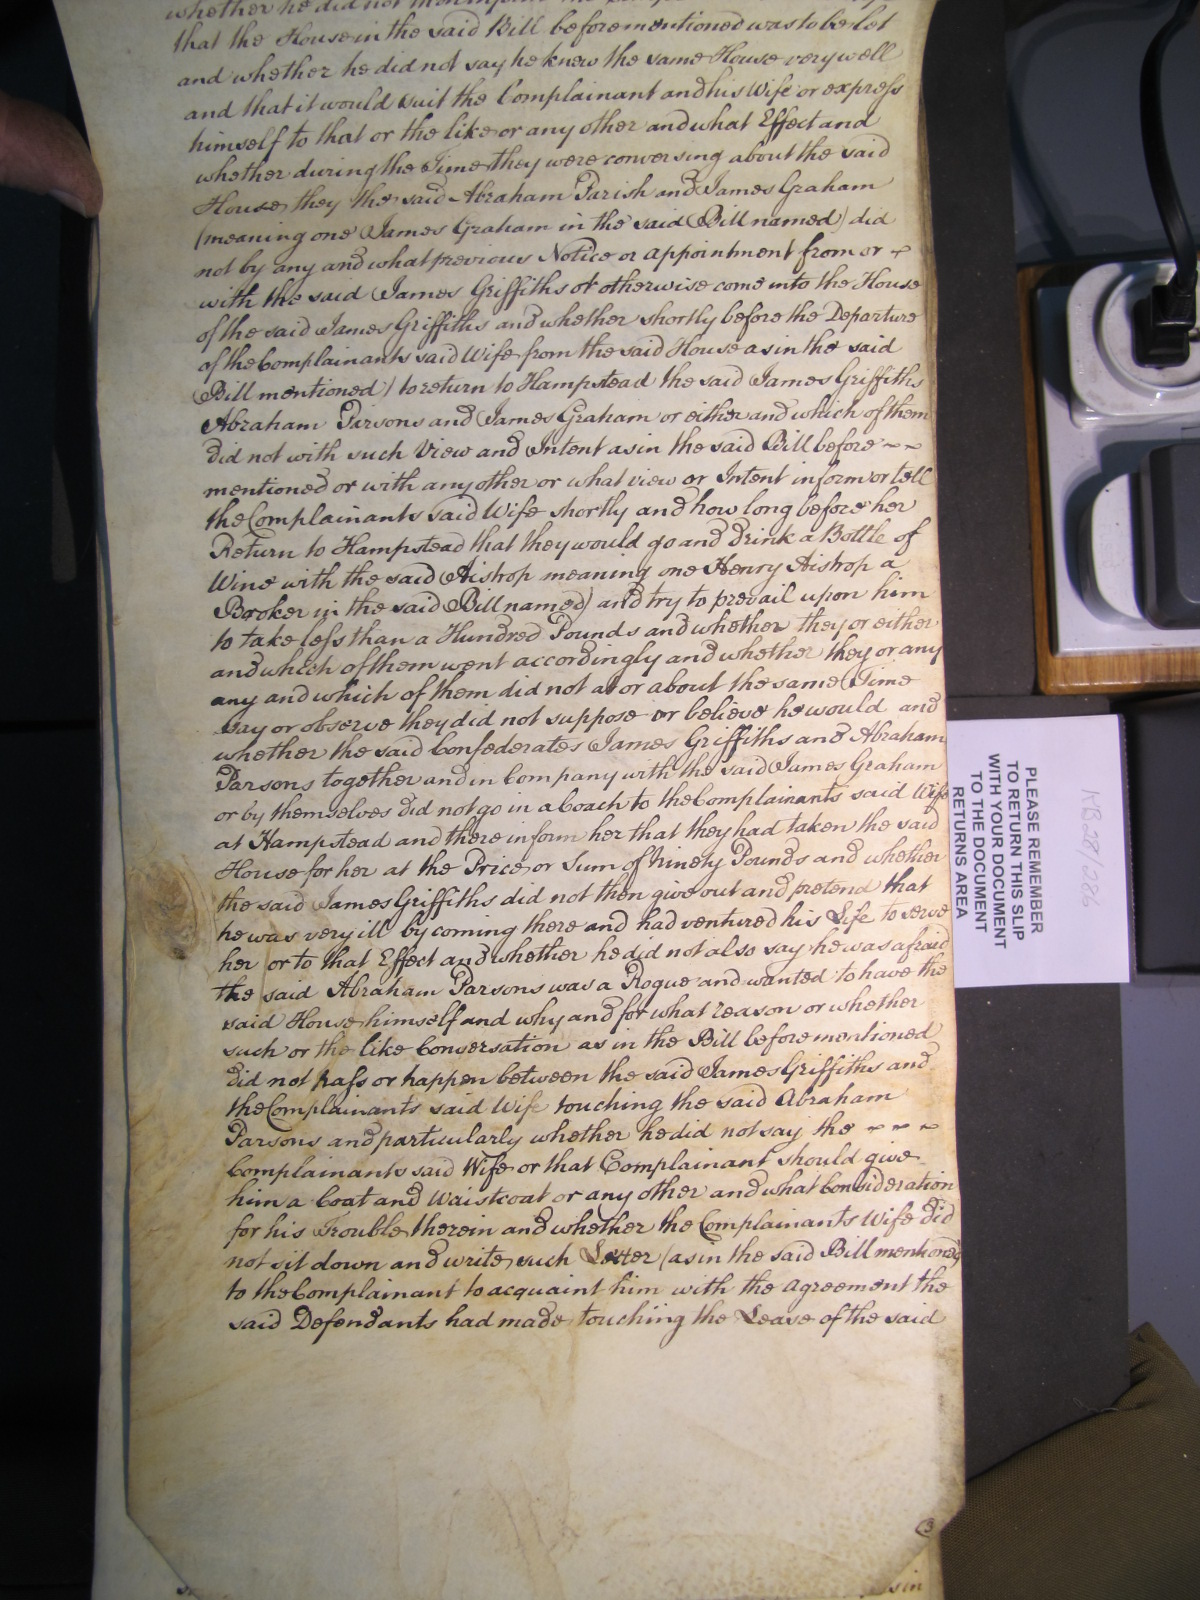 whether he did not
that the House in the said Bill beforementioned was to be let
and whether he did not say he knew the same House very well
and that it would suit the Complainant and his Wife or express
himself to that or the like or any other and what Effect and
whether during the Time they were conversing about the said
House they the said Abraham Parish and James Graham
(meaning one James Graham in the said Bill named) did
not by any and what previous Notice or appointment from or ~
with the said James Griffiths or otherwise come into the House
of the said James Griffiths and whether shortly before the Departure
of the Complainants said Wife from the said House as in the said
Bill mentioned) to return to Hampstead the said James Griffiths
Abraham Pirsons and James Graham or either and which of them
did not with such View and Intent as in the said Bill before ~ ~
mentioned or with any other or what view or Intent inform or tell
the Complainants said Wife shortly and how long before her
Return to Hampstead that they would go and drink a Bottle of
Wine with the said Aistrop meaning one Henry Aistrop a
Broker in the said Bill named) and try to prevail upon him
to take less than a Hundred Pounds and whether they or either
and which of them went accordingly and whether they or any
any and which of them did not at or about the same Time
say or observe they did not suppose or believe he would and
whether the said Confederates James Griffiths and Abraham
Parsons together and in Company with the said James Graham
or by themselves did not go in a Coach to the Complainants said Wife
at Hampstead and there inform her that they had taken the said
House for her at the Price or Sum of Ninety Pounds and whether
the said James Griffiths did not then give out and pretend that
he was very ill by coming there and had ventured his Life to serve
her or to that Effect and whether he did not also say he was afraid
the said Abraham Parsons was a Rogue and wanted to have the
said House himself and why and for what reason or whether
such or the like Conversation as in the Bill before mentioned
did not pass or happen between the said James Griffiths and
the Complainants said Wife touching the said Abraham
Parsons and particularly whether he did not say the ~ ~ ~
Complainants said Wife or that Complainant should give
him a Coat and Waistcoat or any other and what Consideration
for his Trouble therein and whether the Complainants Wife did
not sit down and write such Letter (as in the said Bill mentioned)
to the Complainant to acquaint him with the agreement the
said Defendants had made touching the Lease of the said
3
PLEASE REMEMBER
TO RETURN THIS SLIP
WITH YOUR DOCUMENT
TO THE DOCUMENT
RETURNS AREA
KB 28/286